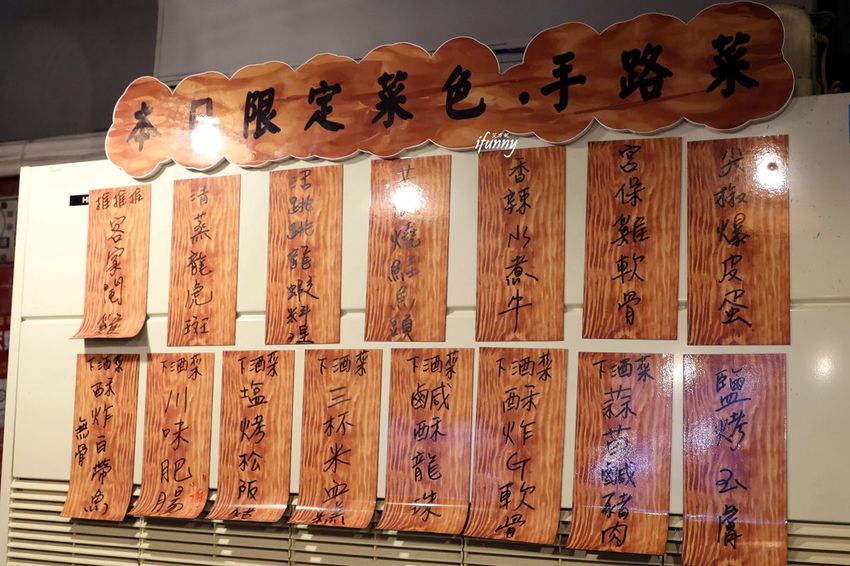 本日限定菜色.手路菜
艾方妮
ifunny
推推推
客家悶筍
清蒸龍虎斑
活跳跳龍蝦料理
燒鮭魚頭
香辣水煮牛
宮保雞軟骨
尖椒爆皮蛋
下酒菜
酥炸白帶魚
無骨
下酒菜
川味肥腸
下酒菜
塩烤松阪
下酒菜
三杯米血糕
下酒菜
鹹酥龍珠
下酒菜
酥炸G軟骨
下酒菜
蒜苗鹹豬肉
鹽烤玉膏